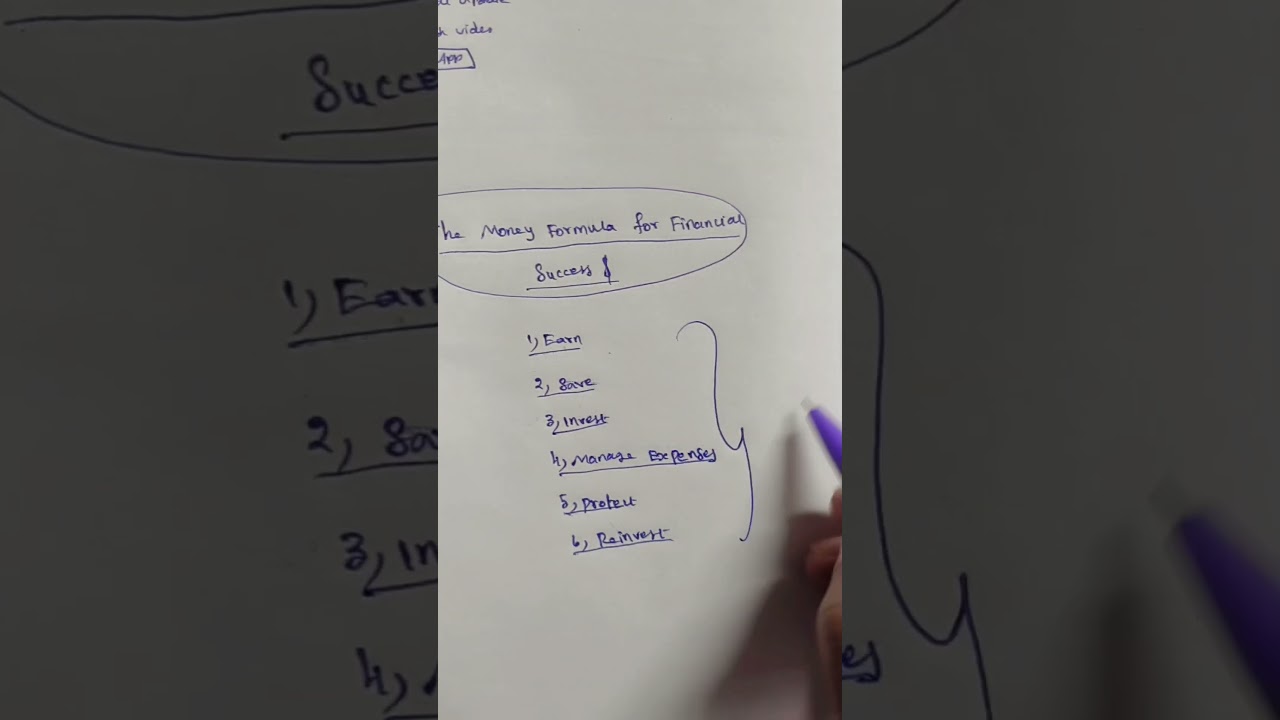 video
App
The Money Formula for Financial
Success
1, Earn
2, Save
3, Invest
4, Manage Expenses
5, Protect
6, Reinvest